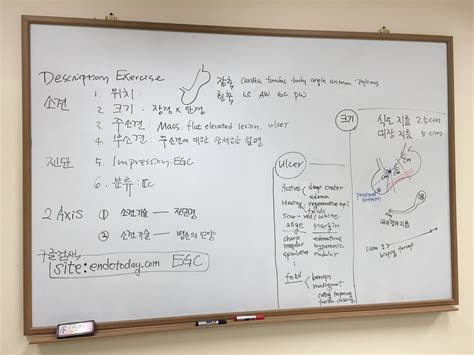 Description Exercise
소견 1. 위치:
2. 크기: 장경 x 단경
3. 주소견: Mass, flat elevated lesion, ulcer
4. 부소견: 주소견에 대한 상세한 설명
진단 5. Impression: EGC
6. 분류: IIc
2 Axis ① 소견 기술 — 진단명
② 소견 기술 — 병소의 모양
구글검색
site: endotoday.com EGC
장축 cardia fundus body angle antrum pylorus
횡축 LC AW GC PW
Ulcer
Active deep crater
edema
Healing regenerative epi
Scar red/white
edge margin
sharp edematous
irregular hyperemic
nodular
fold benign
malignant
크기
식도 지름 2.5cm
대장 지름 5cm
biopsy forcep